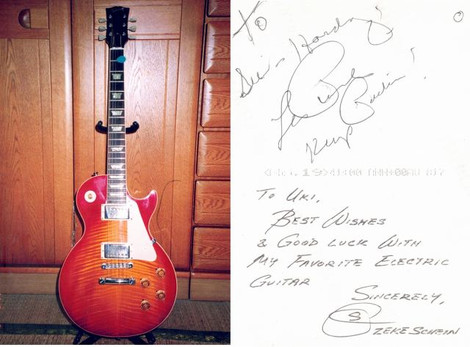 To
Les Paul
Keep Rockin!
TO UKI,
BEST WISHES
& GOOD LUCK WITH
MY FAVORITE ELECTRIC
GUITAR
SINCERELY,
ZEKE SCHEIN